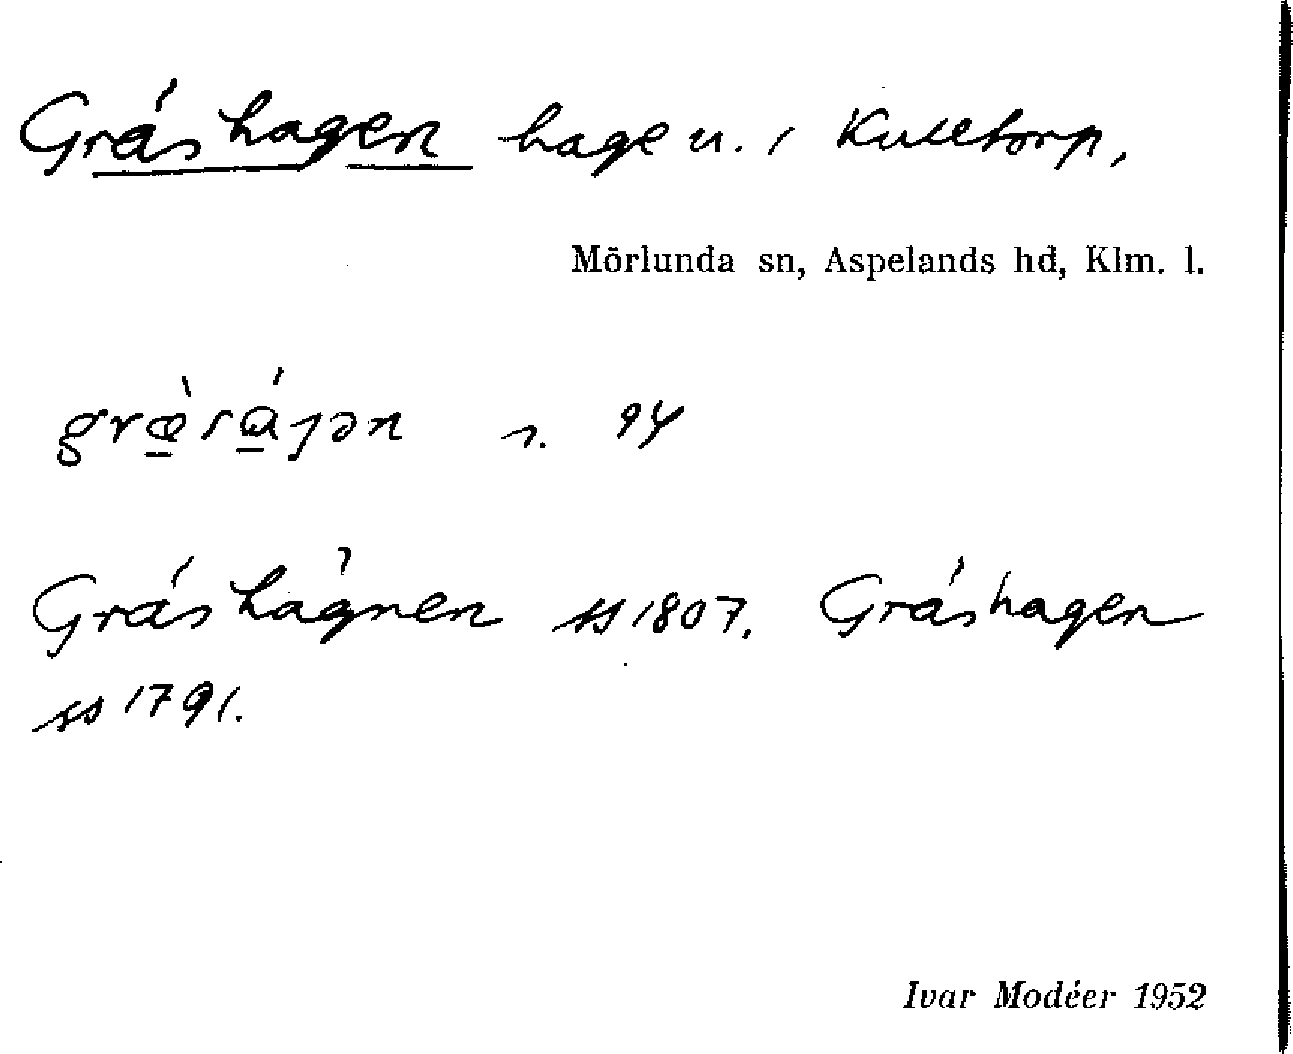 Gräshagen hage u. i Kulltorp,
Mörlunda sn, Aspelands hd, Klm. l.
græ̀sɑ́ɡən s. 94
Gräshagnen ss 1807. Gräshagen
ss 1791.
Ivar Modéer 1952